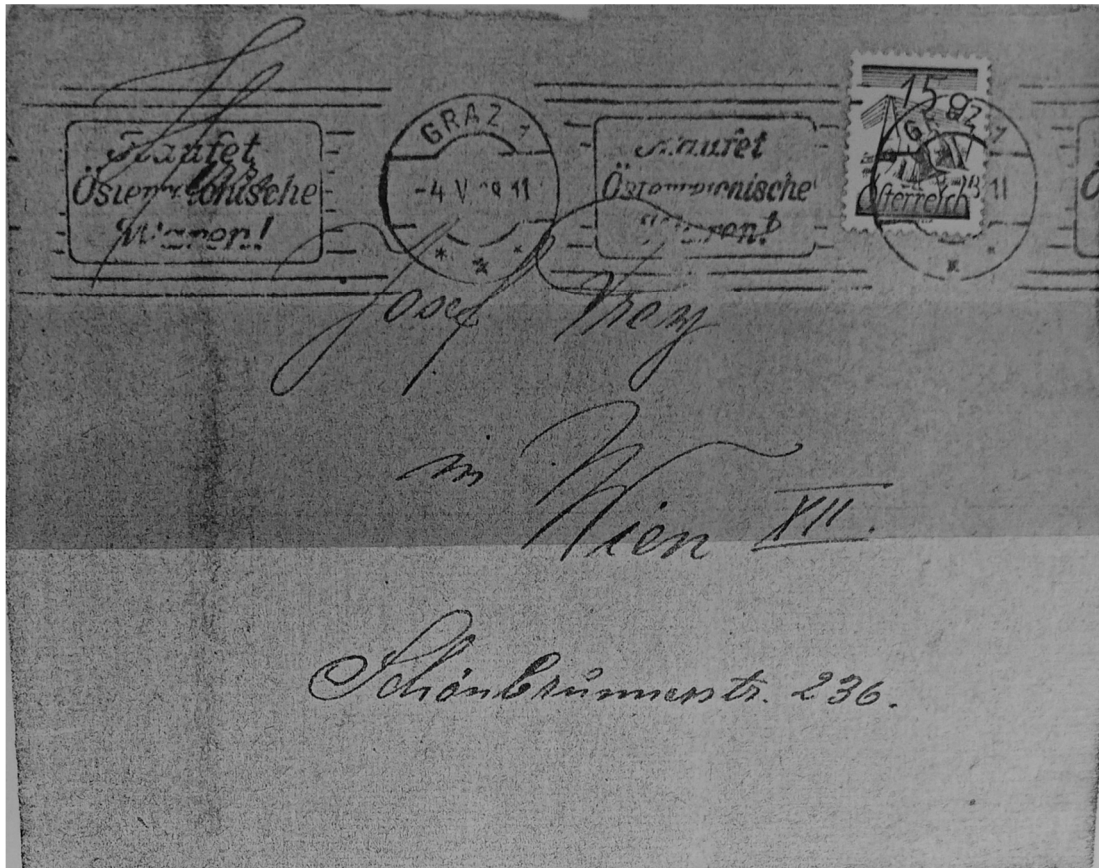 Kaufet
Österreichische
Waren!
GRAZ 1
-4 V 11
Kaufet
Österreichische
Waren!
15 g
Österreich
GRAZ 1
11
Josef
in Wien XII.
Schönbrunnerstr. 236.